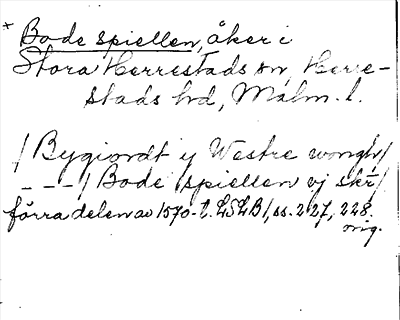 * Bode spiellen, åker i
Stora Herrestads sn, Herre-
stads hd, Malm. l.
/ Bygiordt y Westre wongh /
- - - / Bode spiellen vj skr /
förra delen av 1570-t. LSLB /, ss. 227, 228.
orig.